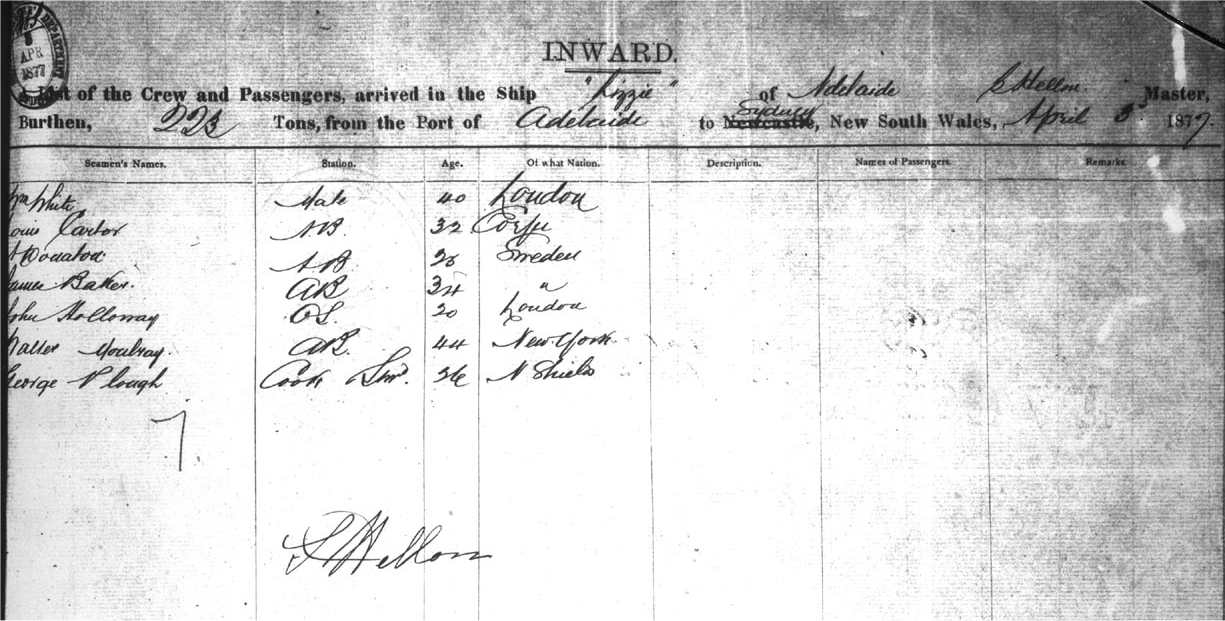 APR
1877
INWARD.
A List of the Crew and Passengers, arrived in the Ship "Lizzie" of Adelaide S Hellon Master,
Burthen, 223 Tons, from the Port of Adelaide to Newcastle, Sydney New South Wales, April 3 1877.
Seamen's Names. Station. Age. Of what Nation. Description. Names of Passengers. Remarks.
Wm White Mate 40 London
Louis Carter AB 32 Corfu
AB 26 Sweden
James Baker. AB 34 "
John Holloway OS. 20 London
Walter AB. 44 New York
George Plough Cook Stwd 26 N Shields
7
S Hellon